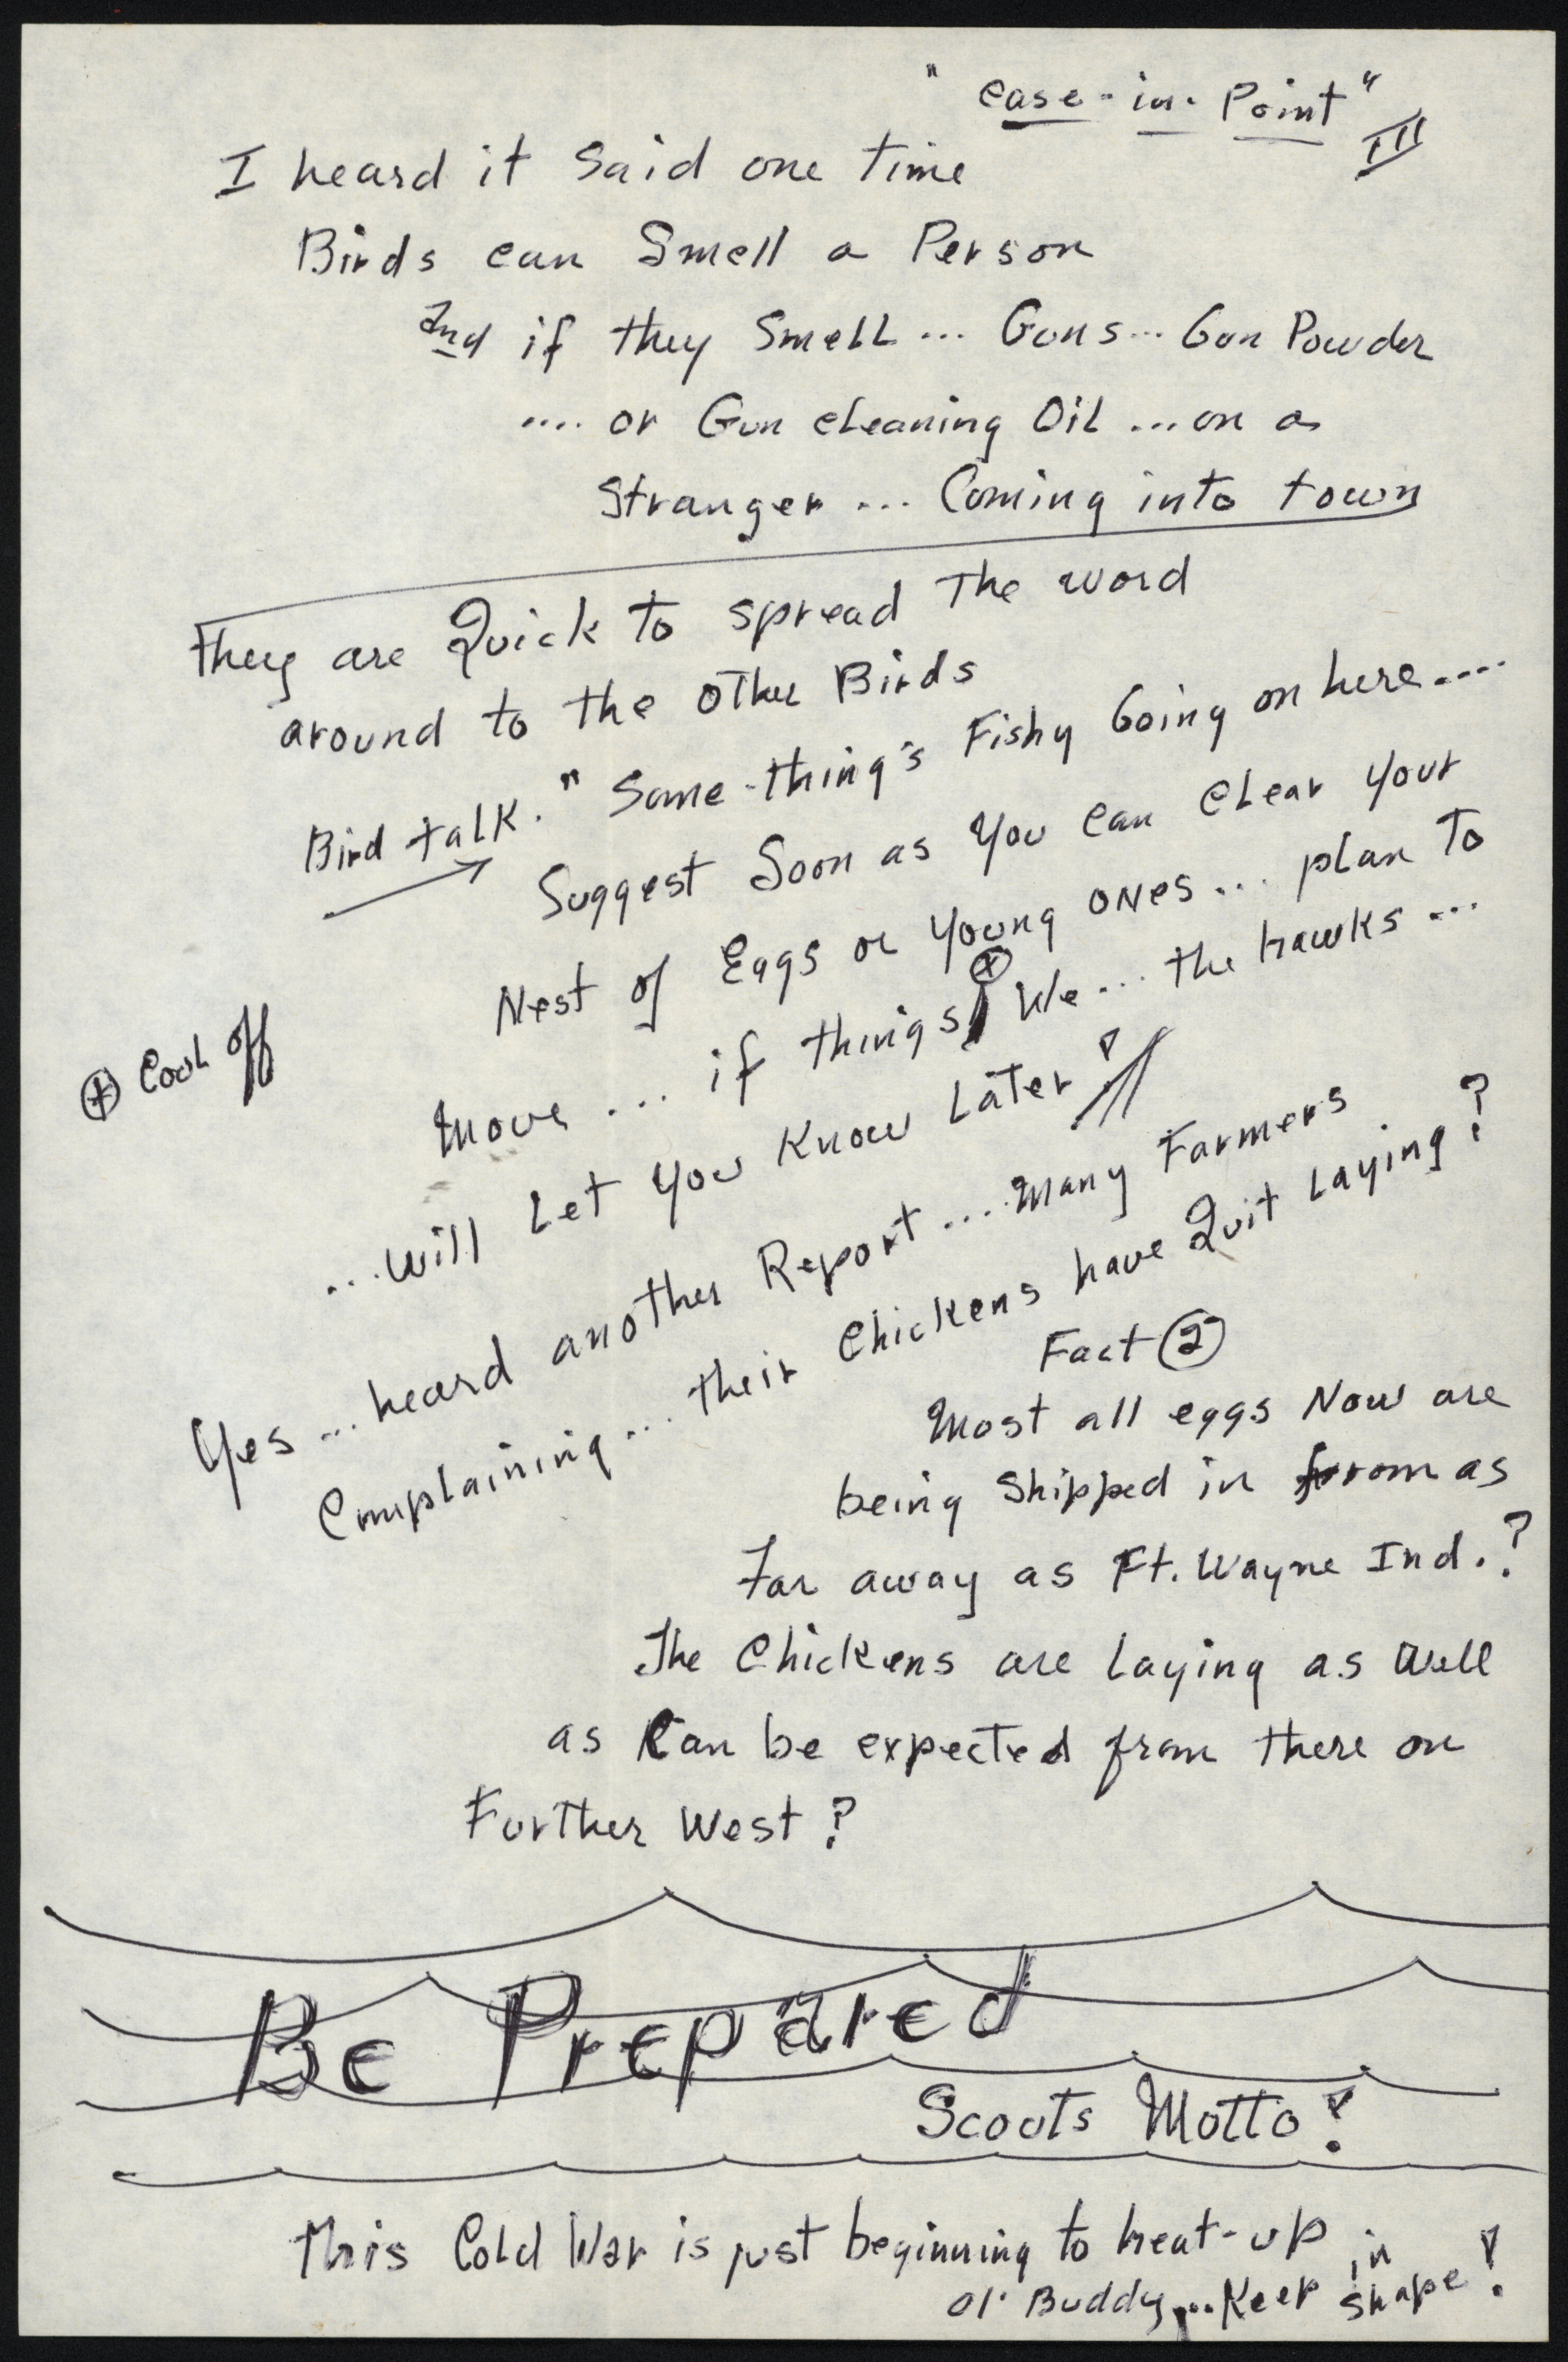 "case-in-Point"
III
I heard it Said one time
Birds can Smell a Person
And if they Smell... Guns... Gun Powder
.... or Gun cleaning Oil ... on a
Stranger ... Coming into town
They are Quick to spread The word
around to the other Birds
Bird talk. "Some-thing's Fishy Going on here....
Suggest Soon as You can clear your
Nest of Eggs or Young ones... plan To
Move ... if things ⊗ We... the hawks...
⊗ Cool off
...will Let you Know Later!
Yes... heard another Report .... Many Farmers
Complaining... their Chickens have Quit Laying?
Fact ②
Most all eggs Now are
being Shipped in from as
Far away as Ft. Wayne Ind.?
The Chickens are Laying as Well
as Can be expected from there on
Further West?
Be Prepared
Scouts Motto!
This Cold War is just beginning to heat-up
Ol' Buddy... Keep in shape!